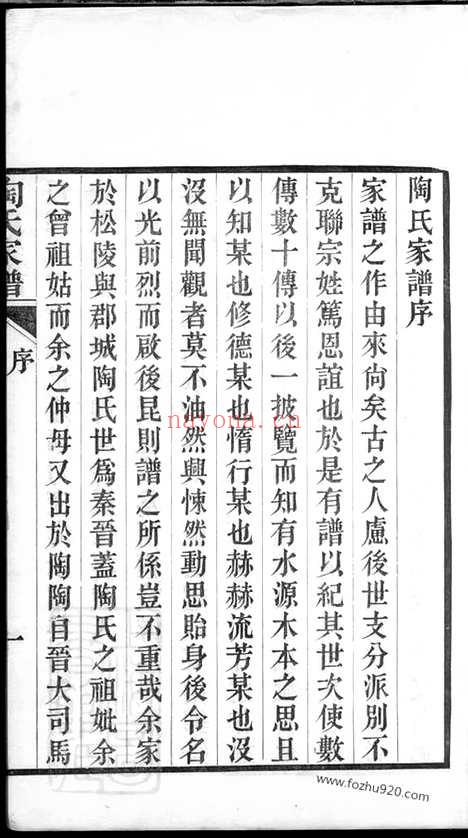 陶氏家譜序
家譜之作由來尙矣古之人慮後世支分派別不
克聯宗姓篤恩誼也於是有譜以紀其世次使數
傳數十傳以後一披覽而知有水源木本之思且
以知某也修德某也惰行某也赫赫流芳某也沒
沒無聞觀者莫不油然興悚然動思貽身後令名
以光前烈而啟後昆則譜之所係豈不重哉余家
於松陵與郡城陶氏世爲秦晉蓋陶氏之祖妣余
之曾祖姑而余之仲母又出於陶陶自晉大司馬
陶氏家譜
序
一
nayona.cn
www.fozhu920.com